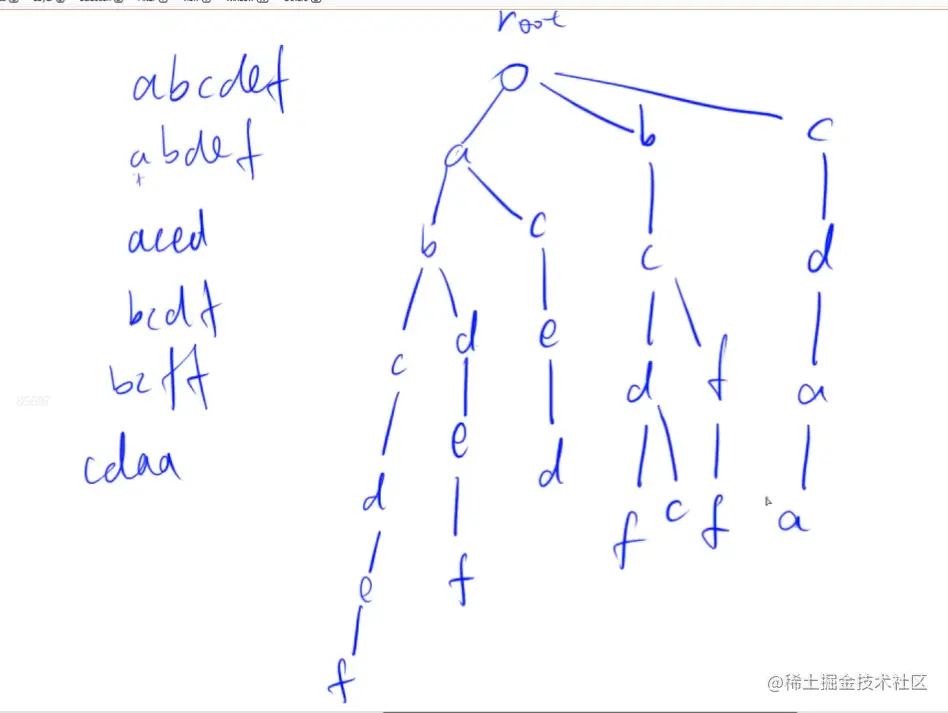 root
abcdef
abdef
aced
bcdf
bcff
cdaa
a
b
c
b
c
c
d
c
d
e
d
f
a
e
d
d
f
c
f
a
e
f
f
@稀土掘金技术社区